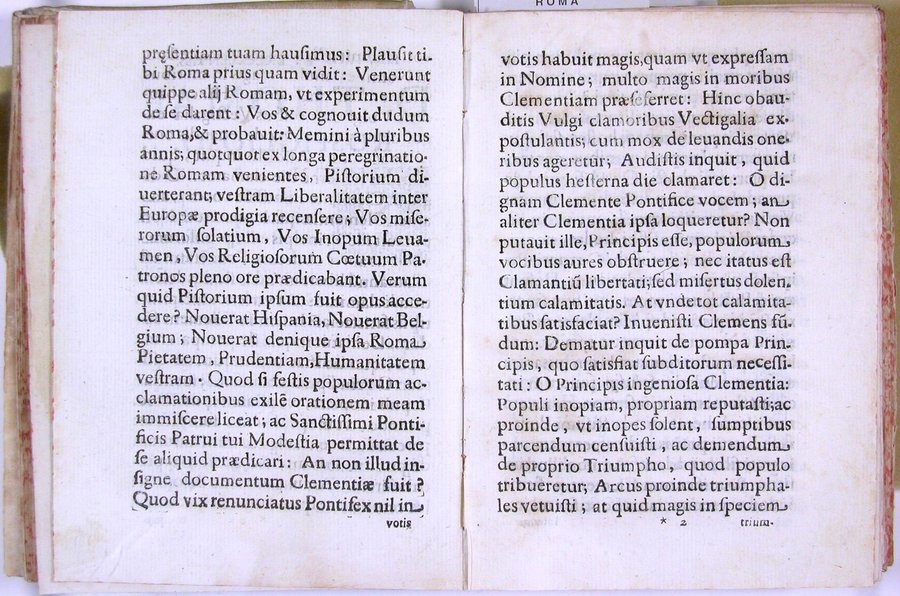 ROMA
pręsentiam tuam hausimus: Plausit ti-
bi Roma prius quam vidit: Venerunt
quippe alij Romam, vt experimentum
de se darent: Vos & cognouit dudum
Roma,& probauit: Memini à pluribus
annis; quotquot ex longa peregrinatio-
ne Romam venientes, Pistorium di-
uerterant; vestram Liberalitatem inter
Europæ prodigia recensere; Vos mise-
rorum solatium, Vos Inopum Leua-
men, Vos Religiosorum Cœtuum Pa-
tronos pleno ore prædicabant. Verum
quid Pistorium ipsum fuit opus acce-
dere? Nouerat Hispania, Nouerat Bel-
gium; Nouerat denique ipsa Roma
Pietatem, Prudentiam,Humanitatem
vestram. Quod si festis populorum ac-
clamationibus exilē orationem meam
immiscere liceat; ac Sanctissimi Ponti-
ficis Patrui tui Modestia permittat de
se aliquid prædicari: An non illud in-
signe documentum Clementiæ fuit?
Quod vix renunciatus Pontifex nil in
votis
votis habuit magis,quam vt expressam
in Nomine; multo magis in moribus
Clementiam præseferret: Hinc obau-
ditis Vulgi clamoribus Vectigalia ex-
postulantis; cum mox de leuandis one-
ribus ageretur; Audistis inquit, quid
populus hesterna die clamaret: O di-
gnam Clemente Pontifice vocem; an
aliter Clementia ipsa loqueretur? Non
putauit ille,Principis esse, populorum
vocibus aures obstruere; nec itatus est
Clamantiū libertati;sed misertus dolen-
tium calamitatis. At vnde tot calamita-
tibus satisfaciat? Inuenisti Clemens fū-
dum: Dematur inquit de pompa Prin-
cipis, quo satisfiat subditorum necessi-
tati: O Principis ingeniosa Clementia:
Populi inopiam, propriam reputasti;ac
proinde, vt inopes solent, sumptibus
parcendum censuisti, ac demendum
de proprio Triumpho, quod populo
tribueretur; Arcus proinde triumpha-
les vetuisti; at quid magis in speciem
* 2 trium-